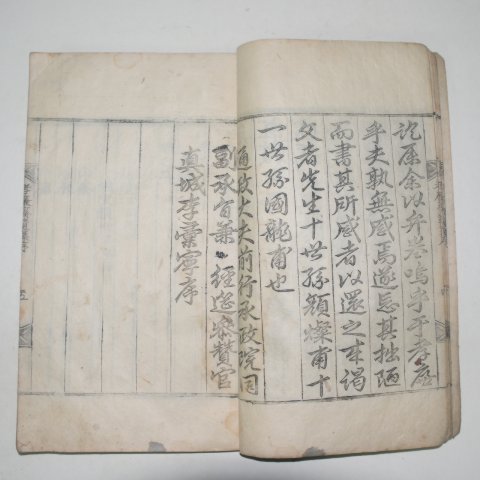 託原余以弁卷嗚乎于孝盧
乎夫孰無感焉遂忘其拙陋
而書其所感者以還之來謁
文者先生十世孫鎭燦甫十
一世孫國龍甫也
通政大夫前行承政院同
副承旨兼 經筵參贊官
眞城李彙寧序